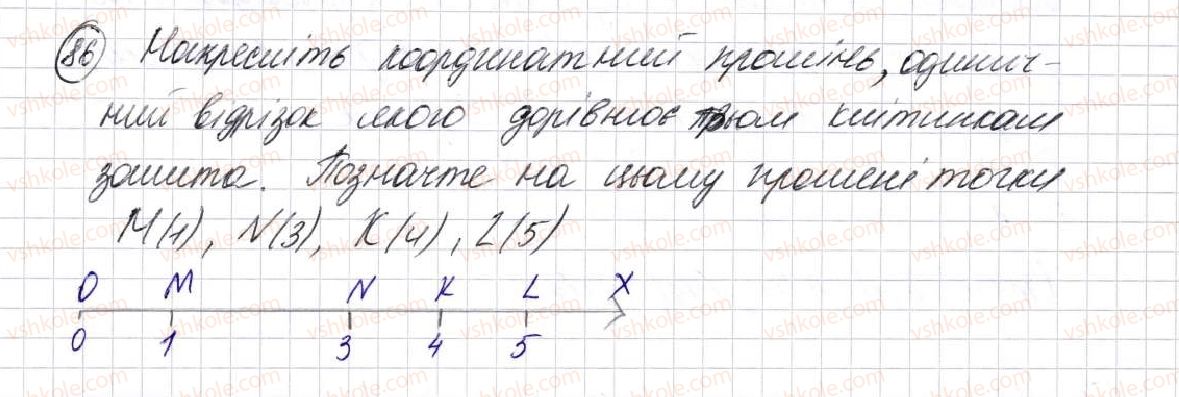 86 Накресліть координатний промінь, одинич-
ний відрізок якого дорівнює трьом клітинкам
зошита. Позначте на цьому промені точки
M(1), N(3), K(4), L(5)
O M N K L X
0 1 3 4 5